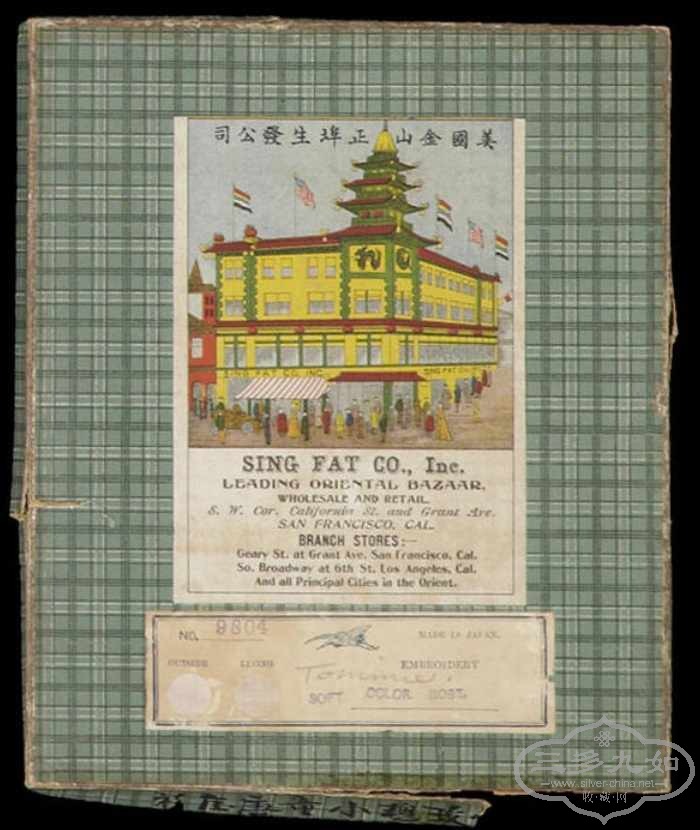 美國金山正埠生發公司
SING FAT CO. INC.
SING FAT CO.
SING FAT CO., Inc.
LEADING ORIENTAL BAZAAR,
WHOLESALE AND RETAIL.
S. W. Cor. California St. and Grant Ave.
SAN FRANCISCO, CAL.
BRANCH STORES:—
Geary St. at Grant Ave. San Francisco, Cal.
So. Broadway at 6th St. Los Angeles, Cal.
And all Principal Cities in the Orient.
NO. 9804
MADE IN JAPAN.
OUTSIDE
EMBROIDERY
Tommie
SOFT COLOR ROSE
三多九如
www.silver-china.net
收·藏·网